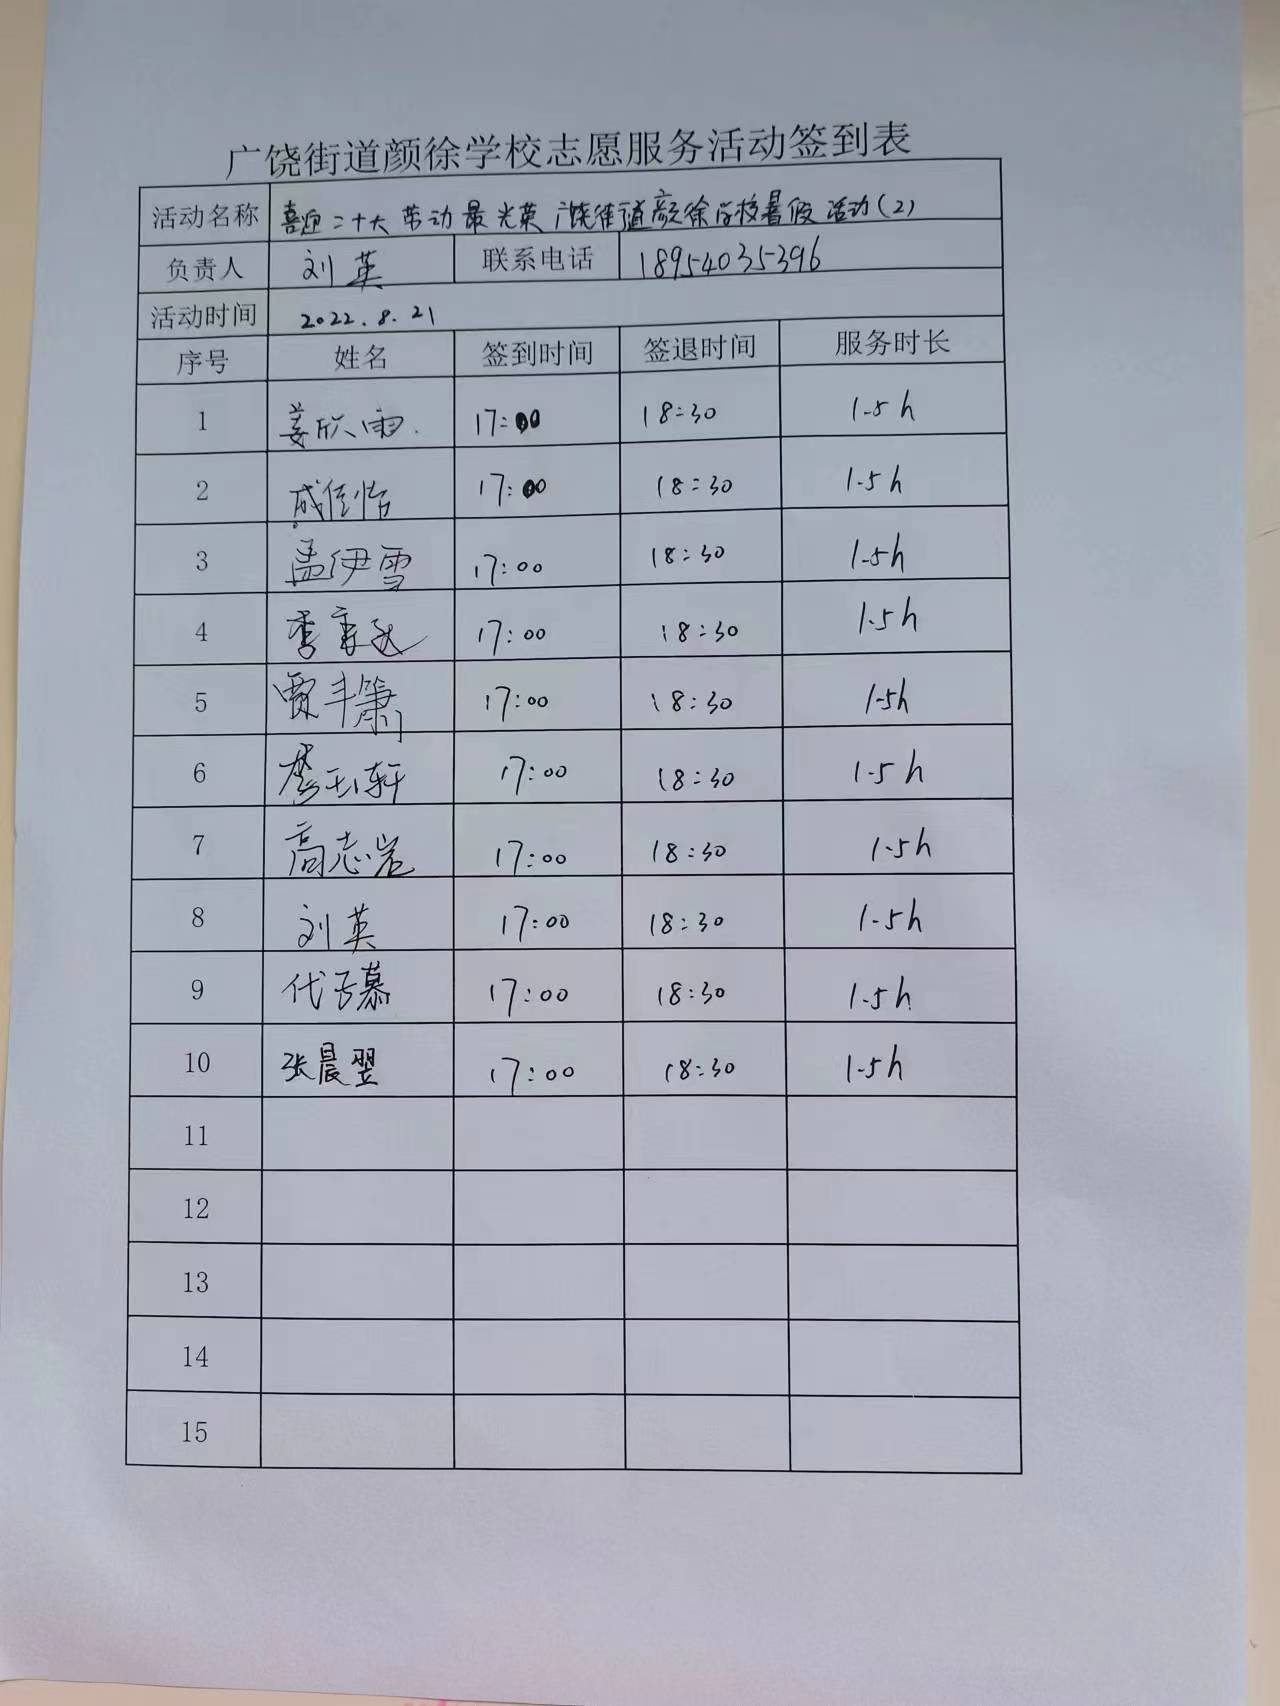 广饶街道颜徐学校志愿服务活动签到表
活动名称 喜迎二十大 劳动最光荣 广饶街道颜徐学校暑假活动(2)
负责人 刘英 联系电话 18954035396
活动时间 2022.8.21
序号 姓名 签到时间 签退时间 服务时长
1 姜欣雨. 17:00 18:30 1.5h
2 成佳怡 17:00 18:30 1.5h
3 孟伊雪 17:00 18:30 1.5h
4 李 17:00 18:30 1.5h
5 贾丰箫 17:00 18:30 1.5h
6 李玉轩 17:00 18:30 1.5h
7 高志岩 17:00 18:30 1.5h
8 刘英 17:00 18:30 1.5h
9 代子慕 17:00 18:30 1.5h
10 张晨翌 17:00 18:30 1.5h
11
12
13
14
15